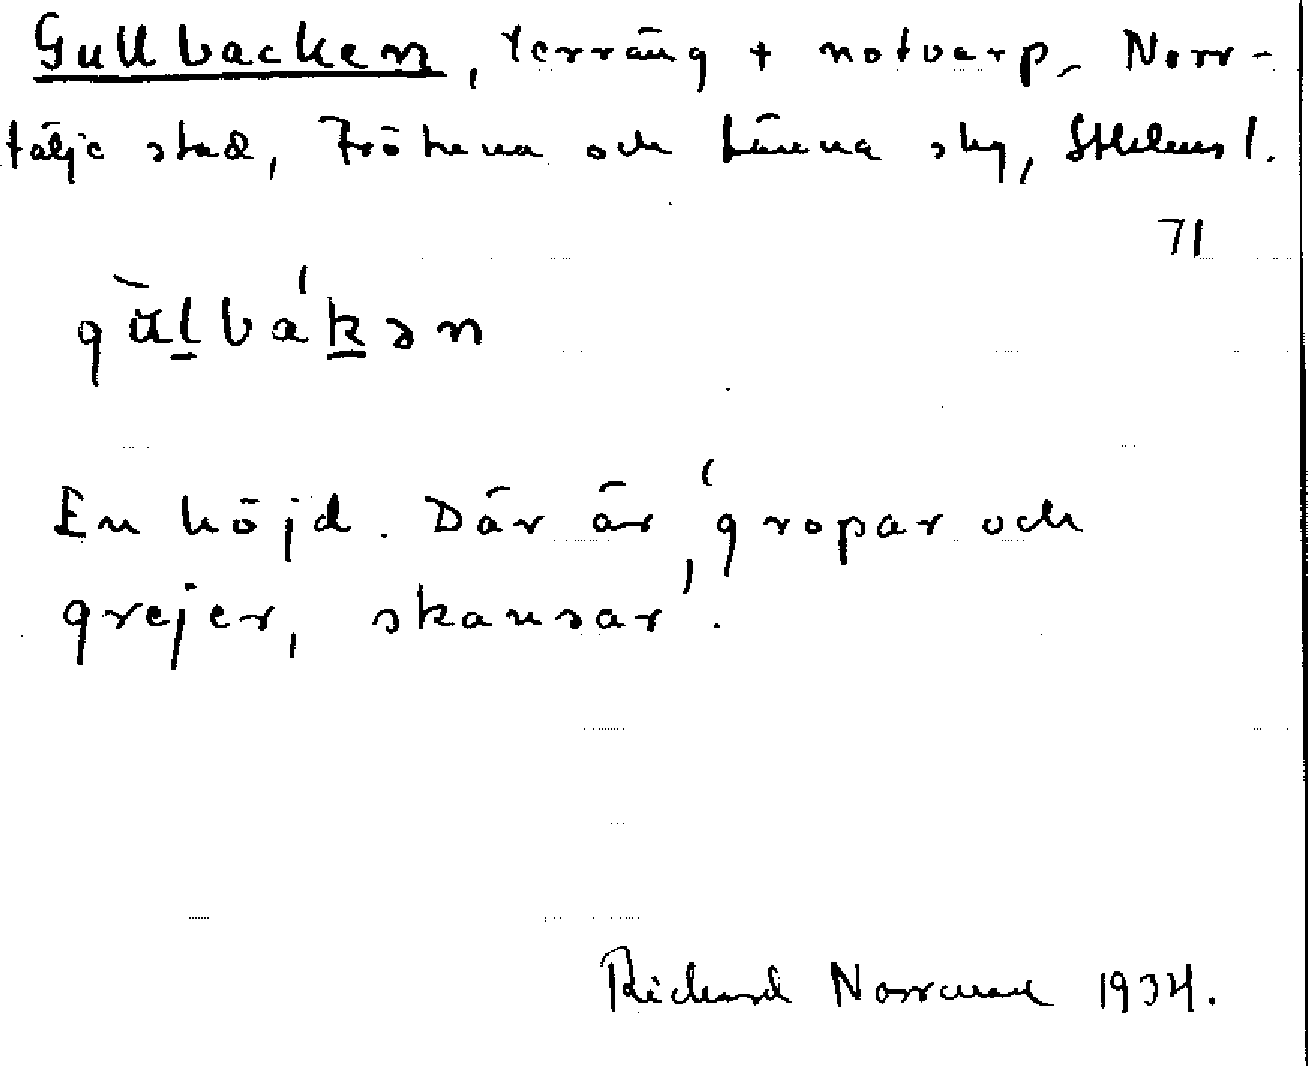 Gullbacken, terräng + notvarp, Norr-
tälje stad, Frötuna och Länna skg, Sthlms l.
71
gùlbákən
En höjd. Där är 'gropar och
grejer, skansar'.
Richard Norrman 1934.